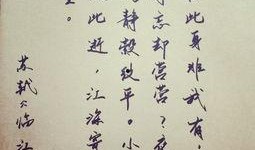 此身非我有，
忘却营营？夜
静縠纹平。小
此逝，江海寄
。
苏轼《临江